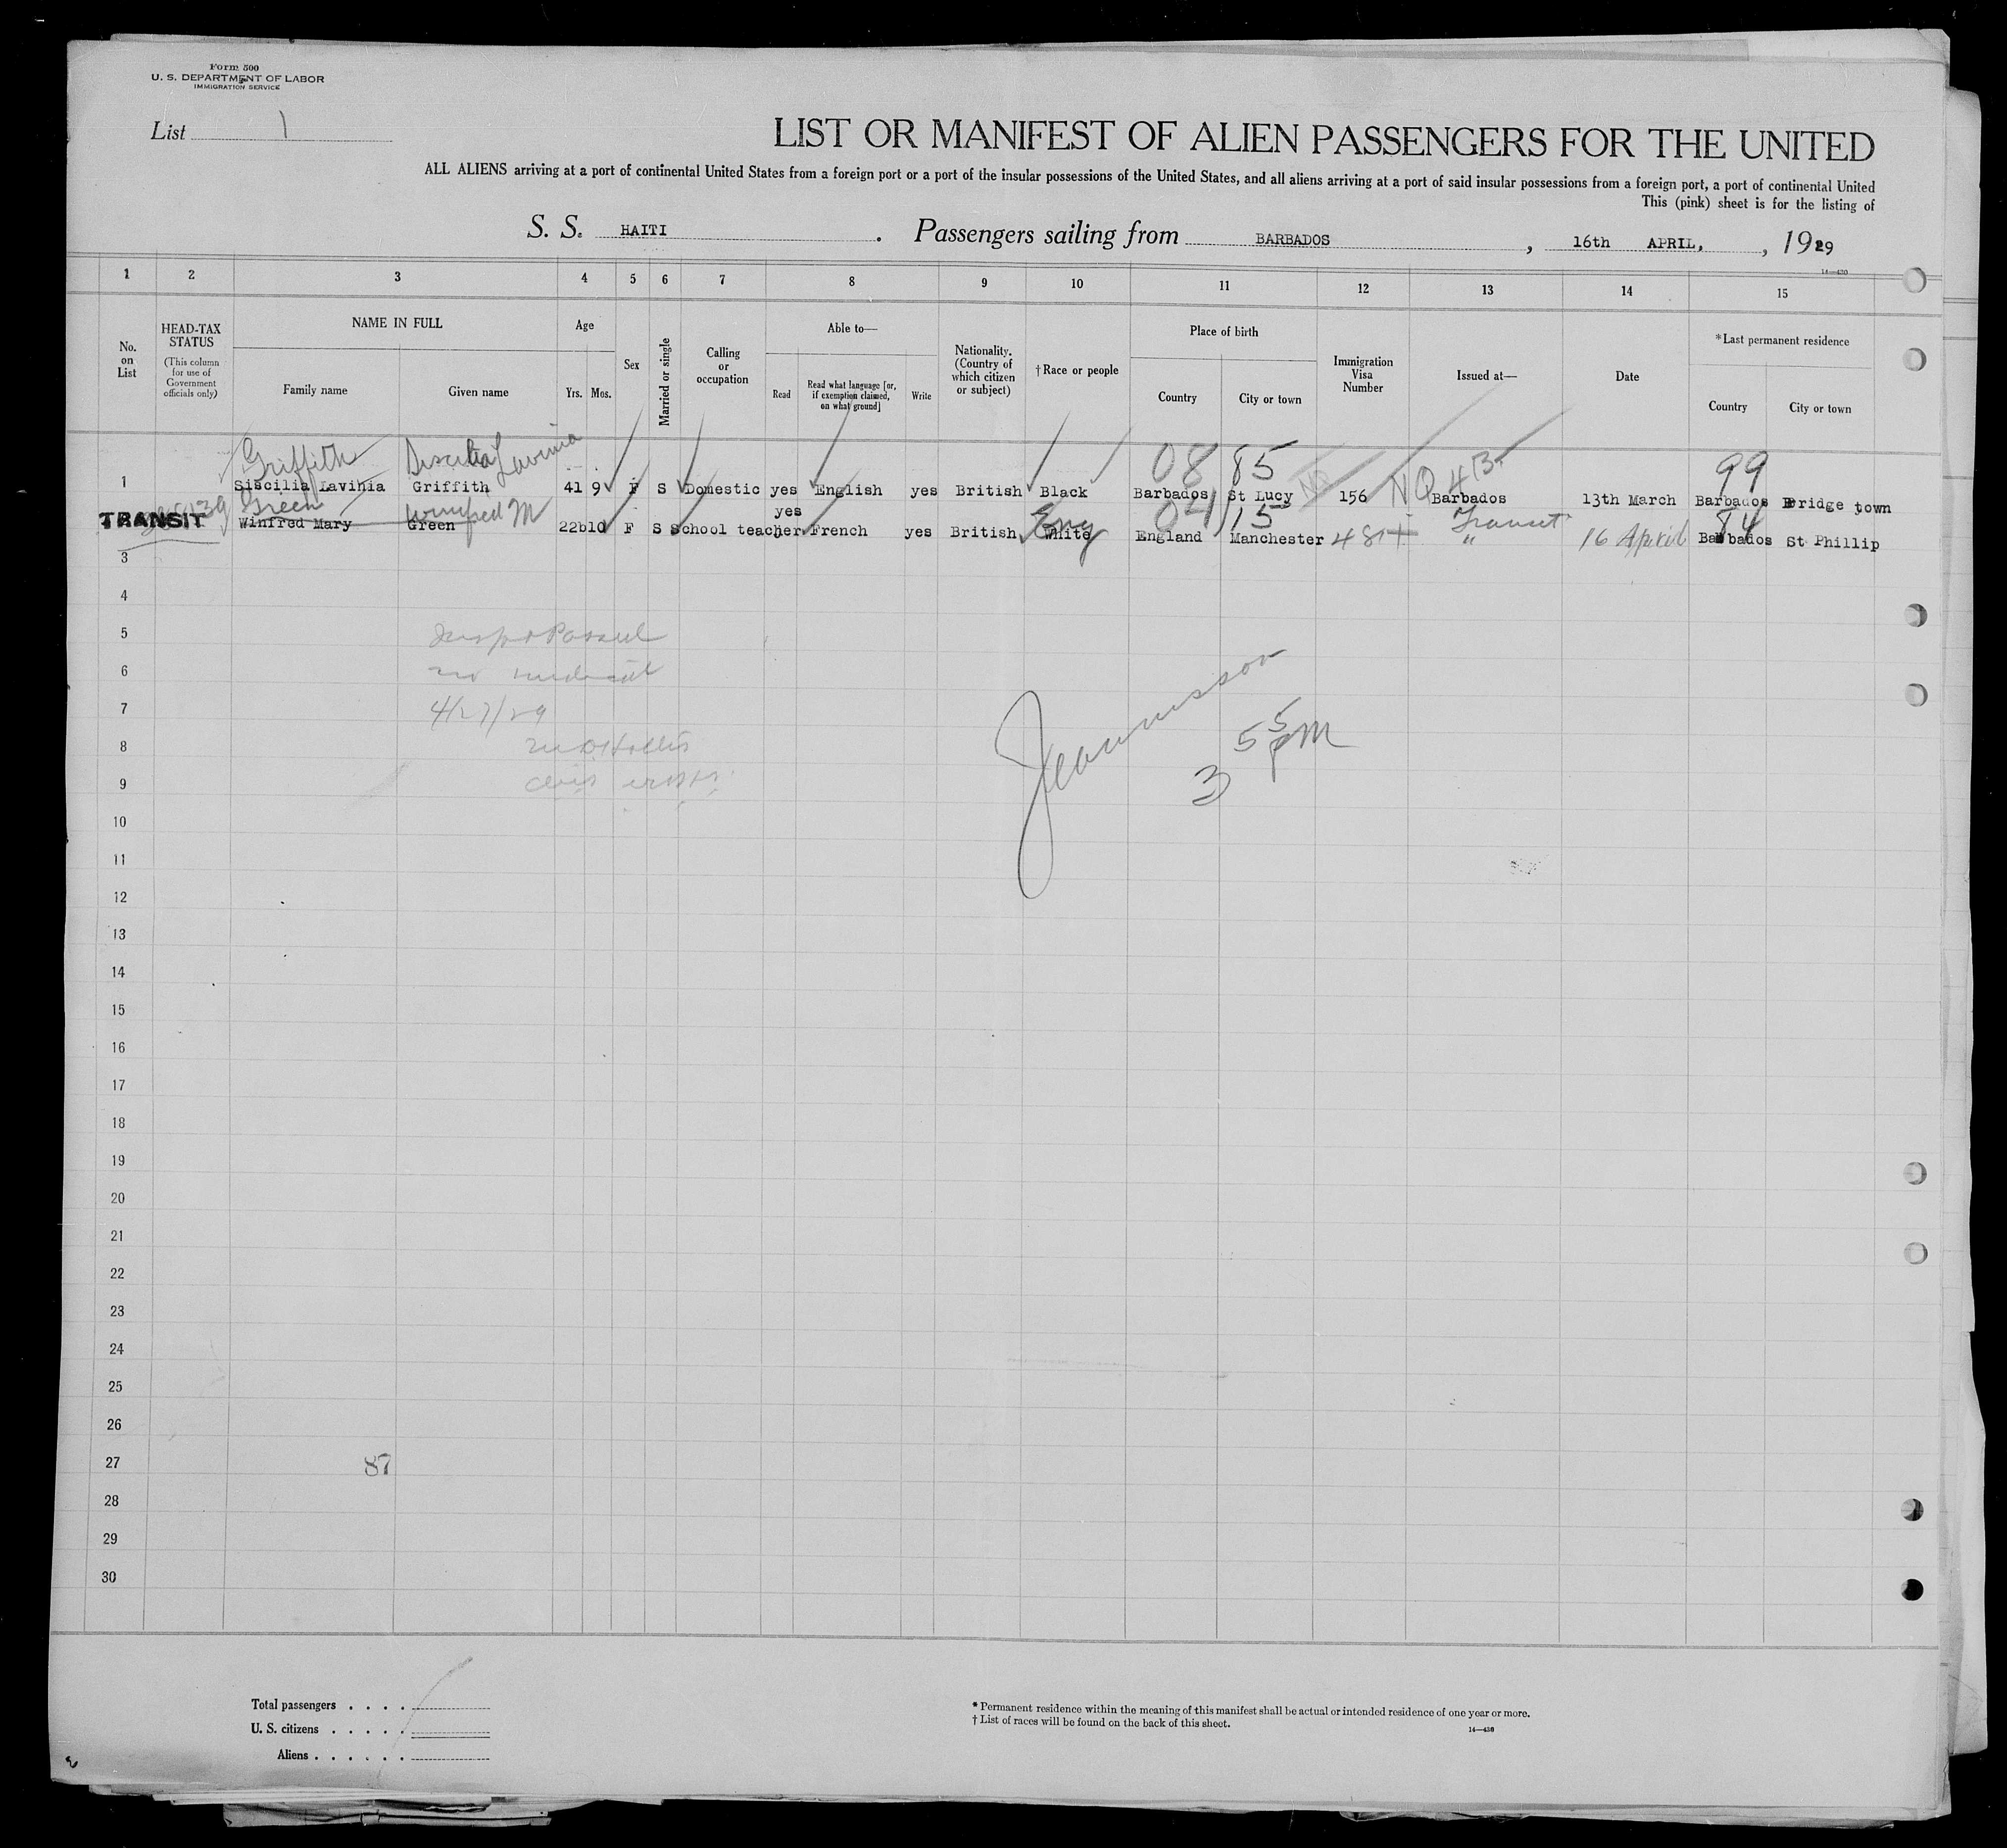 Form 500
U. S. DEPARTMENT OF LABOR
IMMIGRATION SERVICE
List 1
LIST OR MANIFEST OF ALIEN PASSENGERS FOR THE UNITED
ALL ALIENS arriving at a port of continental United States from a foreign port or a port of the insular possessions of the United States, and all aliens arriving at a port of said insular possessions from a foreign port, a port of continental United
This (pink) sheet is for the listing of
S. S. HAITI . Passengers sailing from BARBADOS , 16th APRIL, , 1929
14—430
1 2 3 4 5 6 7 8 9 10 11 12 13 14 15
No. on List
HEAD-TAX STATUS
(This column for use of Government officials only)
NAME IN FULL
Family name Given name
Age
Yrs. Mos.
Sex
Married or single
Calling or occupation
Able to—
Read
Read what language [or, if exemption claimed, on what ground]
Write
Nationality. (Country of which citizen or subject)
† Race or people
Place of birth
Country City or town
Immigration Visa Number
Issued at—
Date
*Last permanent residence
Country City or town
Griffith Siscilia Lavinia 08 85 NQ 99
1 Siscilia Lavinia Griffith 41 9 F S Domestic yes English yes British Black Barbados St Lucy 156 Barbados 13th March Barbados Bridge town
Green Winifred M yes Eng 04 15 Transit 84
TRANSIT Winfred Mary Green 22 10 F S School teacher French yes British White England Manchester 48 " 16 April Barbados St Phillip
3
4
5 Passed
6 no
7 4/27/29
8
9
55
3 pm
10
11
12
13
14
15
16
17
18
19
20
21
22
23
24
25
26
27 87
28
29
30
Total passengers . . . .
U. S. citizens . . . . .
Aliens . . . . . .
* Permanent residence within the meaning of this manifest shall be actual or intended residence of one year or more.
† List of races will be found on the back of this sheet.
14—430